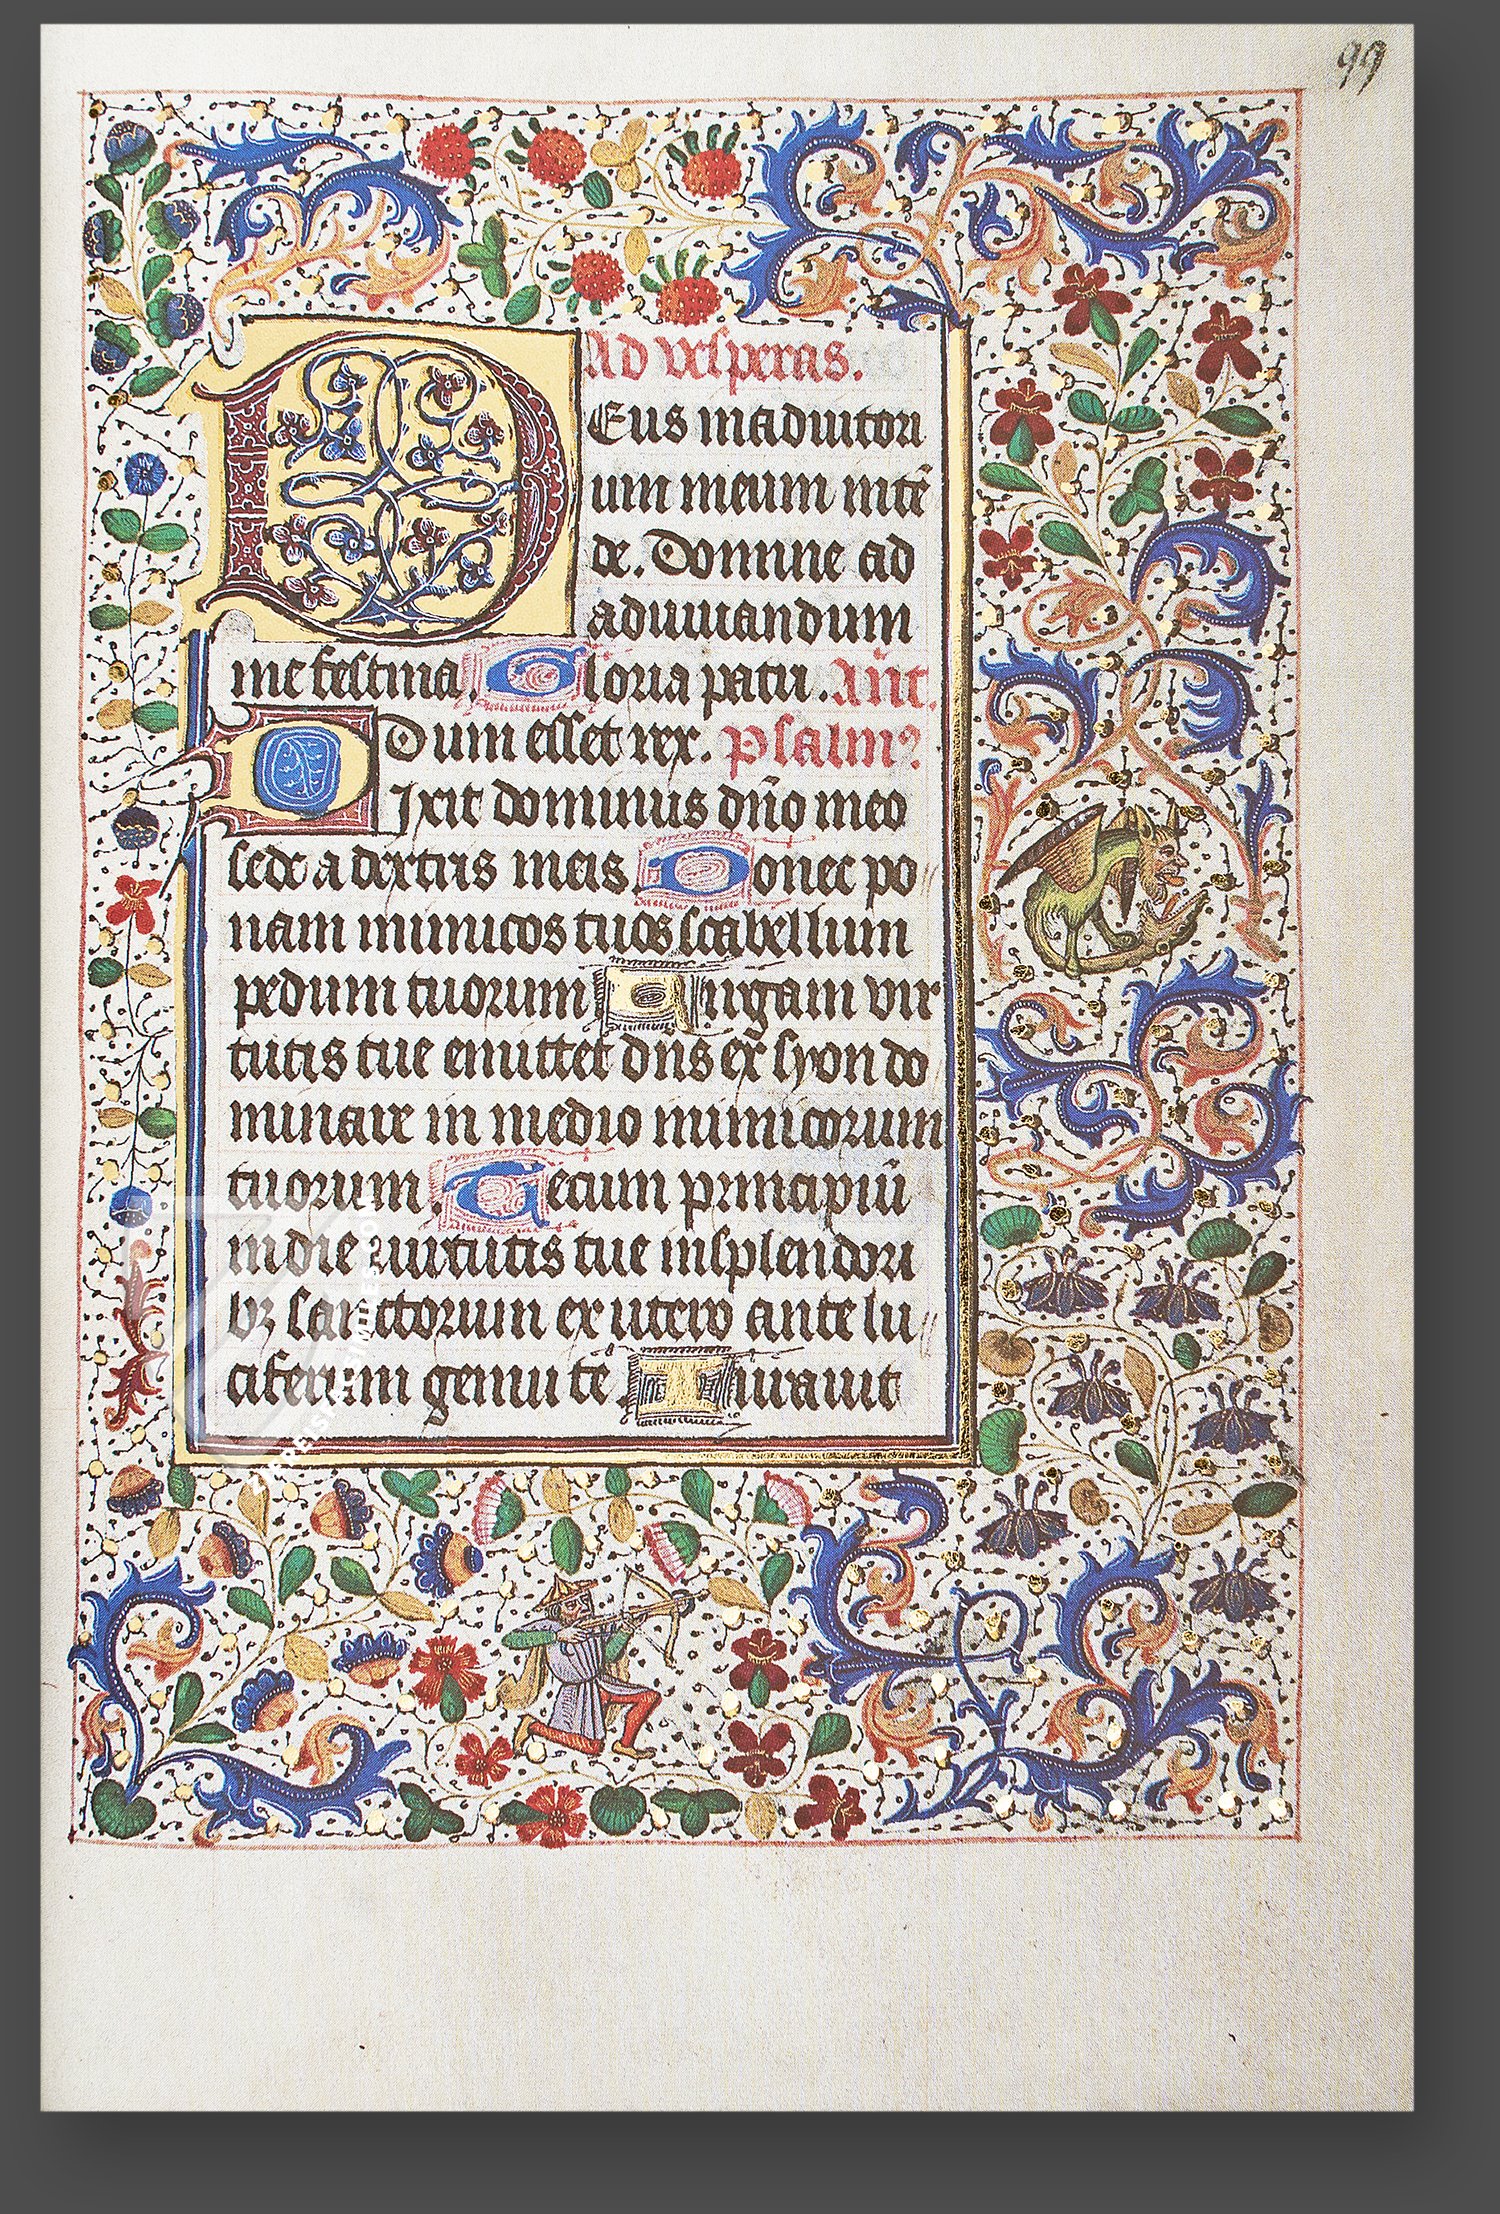 99
Ad vesperas.
DEus in adiutori
um meum intē
de. Domine ad
adiuuandum
me festina. Gloria patri. Ant.
Dum esset rex. Psalmꝰ
DIxit dominus dn̄o meo
sede a dextris meis. Donec po
nam inimicos tuos scabellum
pedum tuorum Uirgam vir
tutis tue emittet dn̄s ex syon do
minare in medio inimicorum
tuorum Tecum principiū
in die uirtutis tue in splendori
bꝫ sanctorum ex utero ante lu
ciferum genui te Iurauit